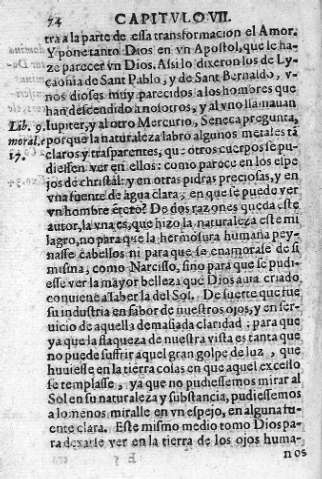 74 CAPITVLO VII.
tra a la parte de essa transformacion el Amor.
Y pone tanto Dios en vn Apostol, que le ha-
ze parecer vn Dios. Assi lo dixeron los de Ly-
caonia de Sant Pablo, y de Sant Bernaldo, v-
nos dioses muy parecidos a los hombres que
han descendido a nosotros, y al vno llamauan
Lib. 9. Iupiter, y al otro Mercurio, Seneca pregunta,
moral. porque la naturaleza labro algunos metales tã
17. claros y trasparentes, qu: otros cuerpos se pu-
diessen ver en ellos: como parece en los espe
jos de christal: y en otras pidras preciosas, y en
vna fuente de agua clara, en que se puede ver
vn hombre ẽtero? De dos razones queda este
autor, la vna es, que hizo la naturaleza este mi
lagro, no para que la hermosura humana pey-
nasse cabellos ni para que se enamorase de si
misma, como Narcisso, sino para que se pudi-
esse ver la mayor belleza que Dios auia criado,
conuiene a saber la del Sol. De suerte que fue
su industria en fabor de nuestros ojos, y en ser-
uicio de aquella demasiada claridad: para que
ya que la flaqueza de nuestra vista es tanta que
no puede suffrir aquel gran golpe de luz, que
huuiesse en la tierra colas en que aquel excesso
se templasse, ya que no pudiessemos mirar al
Sol en su naturaleza y substancia, pudiessemos
a lo menos miralle en vn espejo, en alguna fu-
ente clara. Este mismo medio tomo Dios pa-
ra dexarse ver en la tierra de los ojos huma-
nos